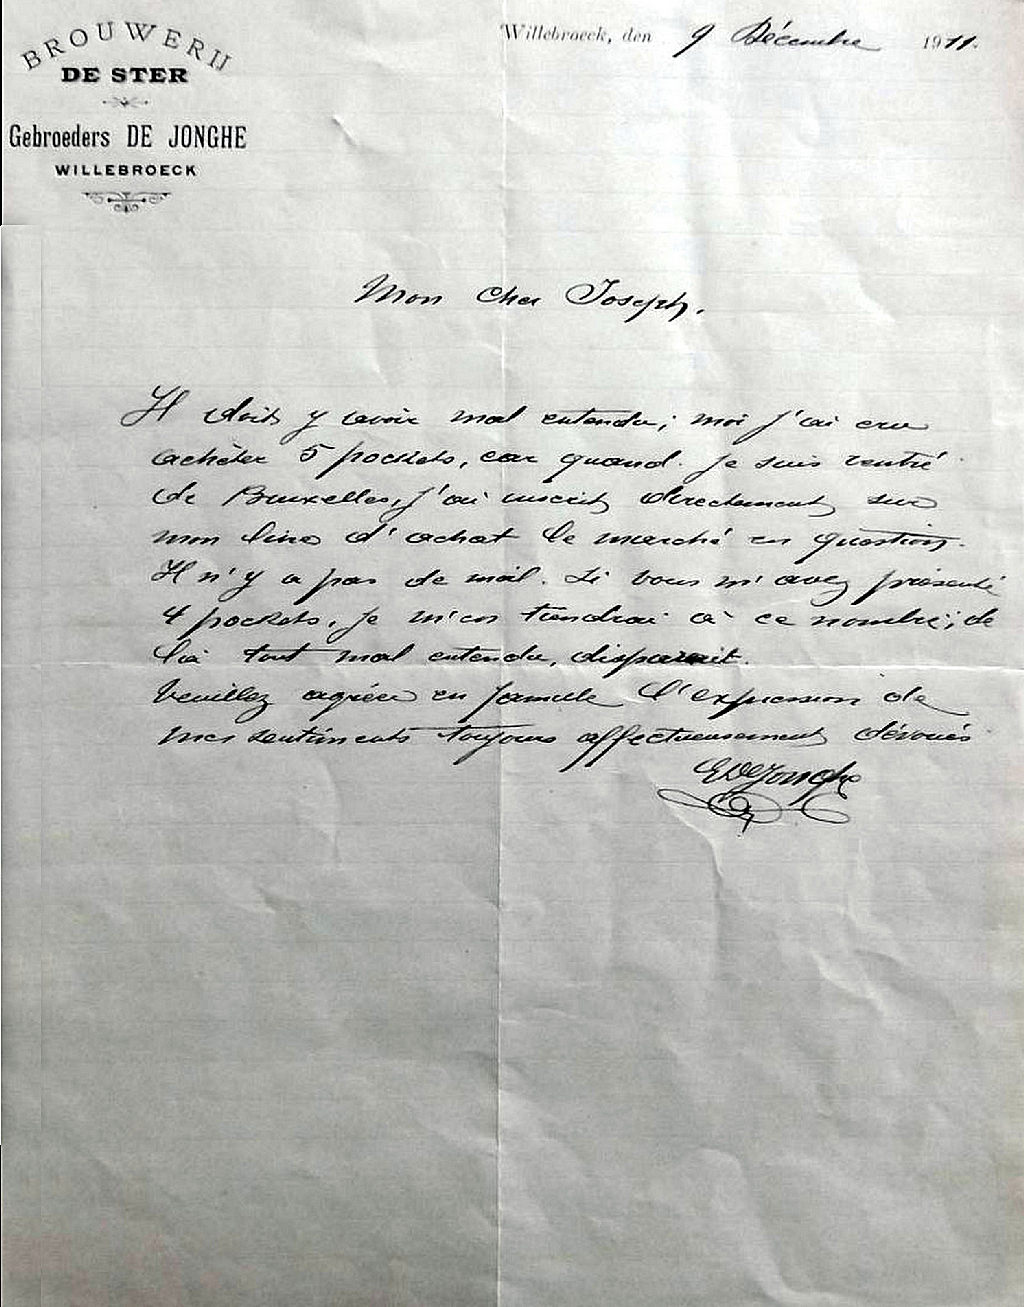 BROUWERIJ
DE STER
Gebroeders DE JONGHE
WILLEBROECK
Willebroeck, den 9 Décembre 1911.
Mon cher Joseph.
Il doit y avoir mal entendu; moi j'ai cru
acheter 5 pockets, car quand je suis rentré
de Bruxelles, j'ai inscrit directement sur
mon livre d'achat le marché en question.
Il n'y a pas de mal. Si vous m'avez présenté
4 pockets, je m'en tiendrai à ce nombre; de
là tout mal entendu, disparait.
Veuillez agréer en famille l'expression de
mes sentiments toujours affectueusement dévoués
E De Jonghe